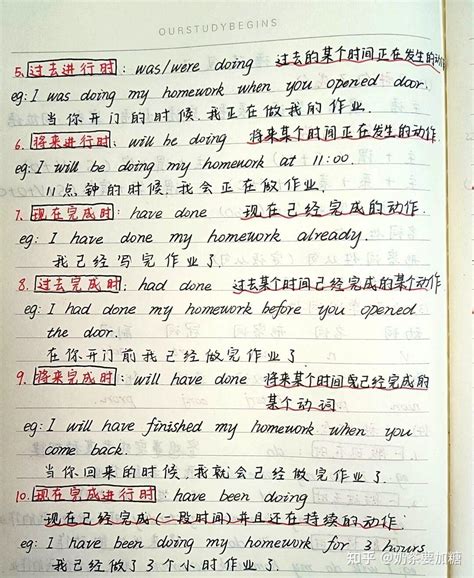 OURSTUDYBEGINS
5. 过去进行时: was/were doing 过去的某个时间正在发生的动作
eg: I was doing my homework when you opened door.
当你开门的时候,我正在做我的作业.
6. 将来进行时: will be doing 将来某个时间正在发生的动作.
eg: I will be doing my homework at 11:00.
11点钟的时候,我会正在做作业.
7. 现在完成时: have done 现在已经完成的动作.
eg: I have done my homework already.
我已经写完作业了.
8. 过去完成时: had done 过去某个时间已经完成的某个动作
eg: I had done my homework before you opened
the door.
在你开门前我已经做完作业了.
9. 将来完成时: will have done 将来某个时间已经完成的
某个动词
eg: I will have finished my homework when you
come back.
当你回来的时候,我就会已经做完作业了.
10. 现在完成进行时: have been doing
现在已经完成(一段时间)并且还在持续的动作.
eg: I have been doing my homework for 3 hours
我已经做了3个小时作业了.
知乎 @奶茶要加糖